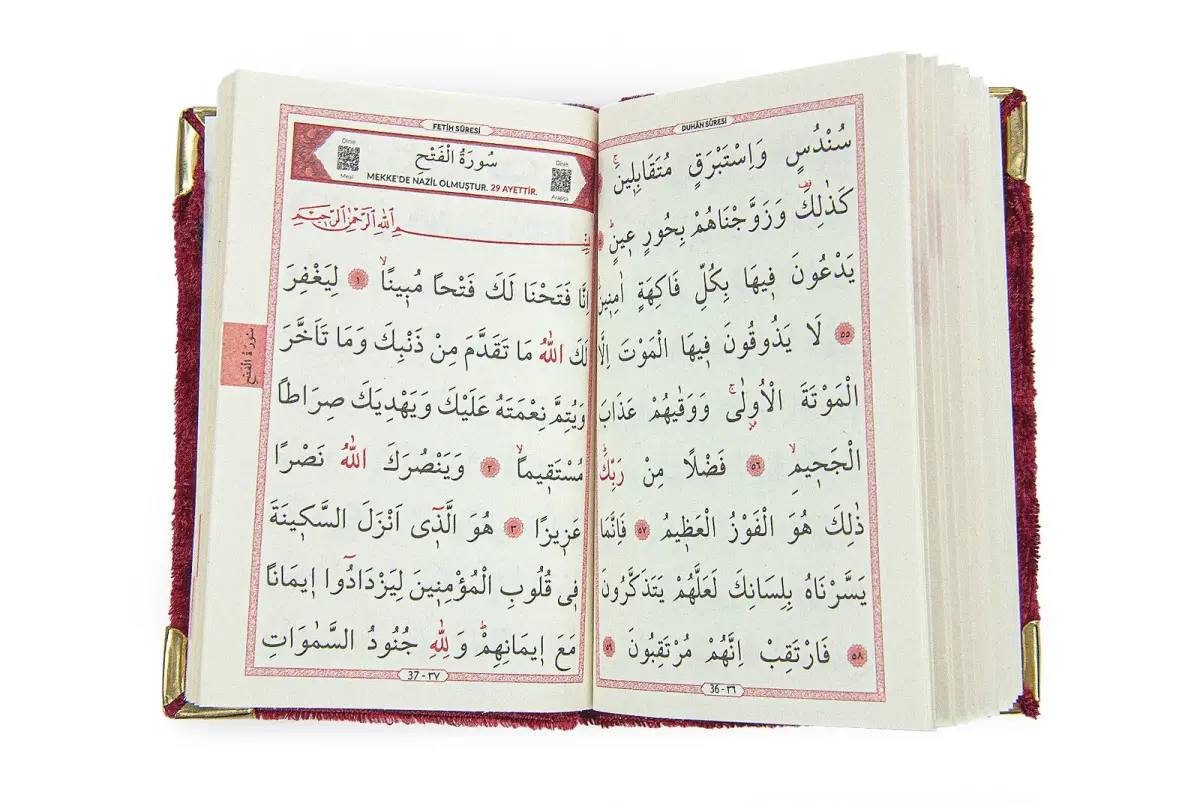 DUHÂN SÛRESİ
سُنْدُسٍ وَاِسْتَبْرَقٍ مُتَقَابِل۪ينَۚ
كَذٰلِكَ۠ وَزَوَّجْنَاهُمْ بِحُورٍ ع۪ينٍۜ
يَدْعُونَ ف۪يهَا بِكُلِّ فَاكِهَةٍ اٰمِن۪ينَ
٥٥ لَا يَذُوقُونَ ف۪يهَا الْمَوْتَ اِلَّا
الْمَوْتَةَ الْاُو۫لٰىۚ وَوَقٰيهُمْ عَذَابَ
الْجَح۪يمِۙ ٥٦ فَضْلًا مِنْ رَبِّكَۜ
ذٰلِكَ هُوَ الْفَوْزُ الْعَظ۪يمُ ٥٧ فَاِنَّمَا
يَسَّرْنَاهُ بِلِسَانِكَ لَعَلَّهُمْ يَتَذَكَّرُونَ
٥٨ فَارْتَقِبْ اِنَّهُمْ مُرْتَقِبُونَ ٥٩
36 - ٣٦
FETİH SÛRESİ
Dinle
Meal
سُورَةُ الْفَتْحِ
MEKKE'DE NAZİL OLMUŞTUR. 29 AYETTİR.
Dinle
Arapça
بِسْمِ اللّٰهِ الرَّحْمٰنِ الرَّح۪يمِ
اِنَّا فَتَحْنَا لَكَ فَتْحًا مُب۪ينًاۙ ١ لِيَغْفِرَ
لَكَ اللّٰهُ مَا تَقَدَّمَ مِنْ ذَنْبِكَ وَمَا تَاَخَّرَ
وَيُتِمَّ نِعْمَتَهُ عَلَيْكَ وَيَهْدِيَكَ صِرَاطًا
مُسْتَق۪يمًاۙ ٢ وَيَنْصُرَكَ اللّٰهُ نَصْرًا
عَز۪يزًا ٣ هُوَ الَّذ۪ٓي اَنْزَلَ السَّك۪ينَةَ
ف۪ي قُلُوبِ الْمُؤْمِن۪ينَ لِيَزْدَادُٓوا ا۪يمَانًا
مَعَ ا۪يمَانِهِمْۜ وَلِلّٰهِ جُنُودُ السَّمٰوَاتِ
37 - ٣٧
سُورَةُ الْفَتْحِ